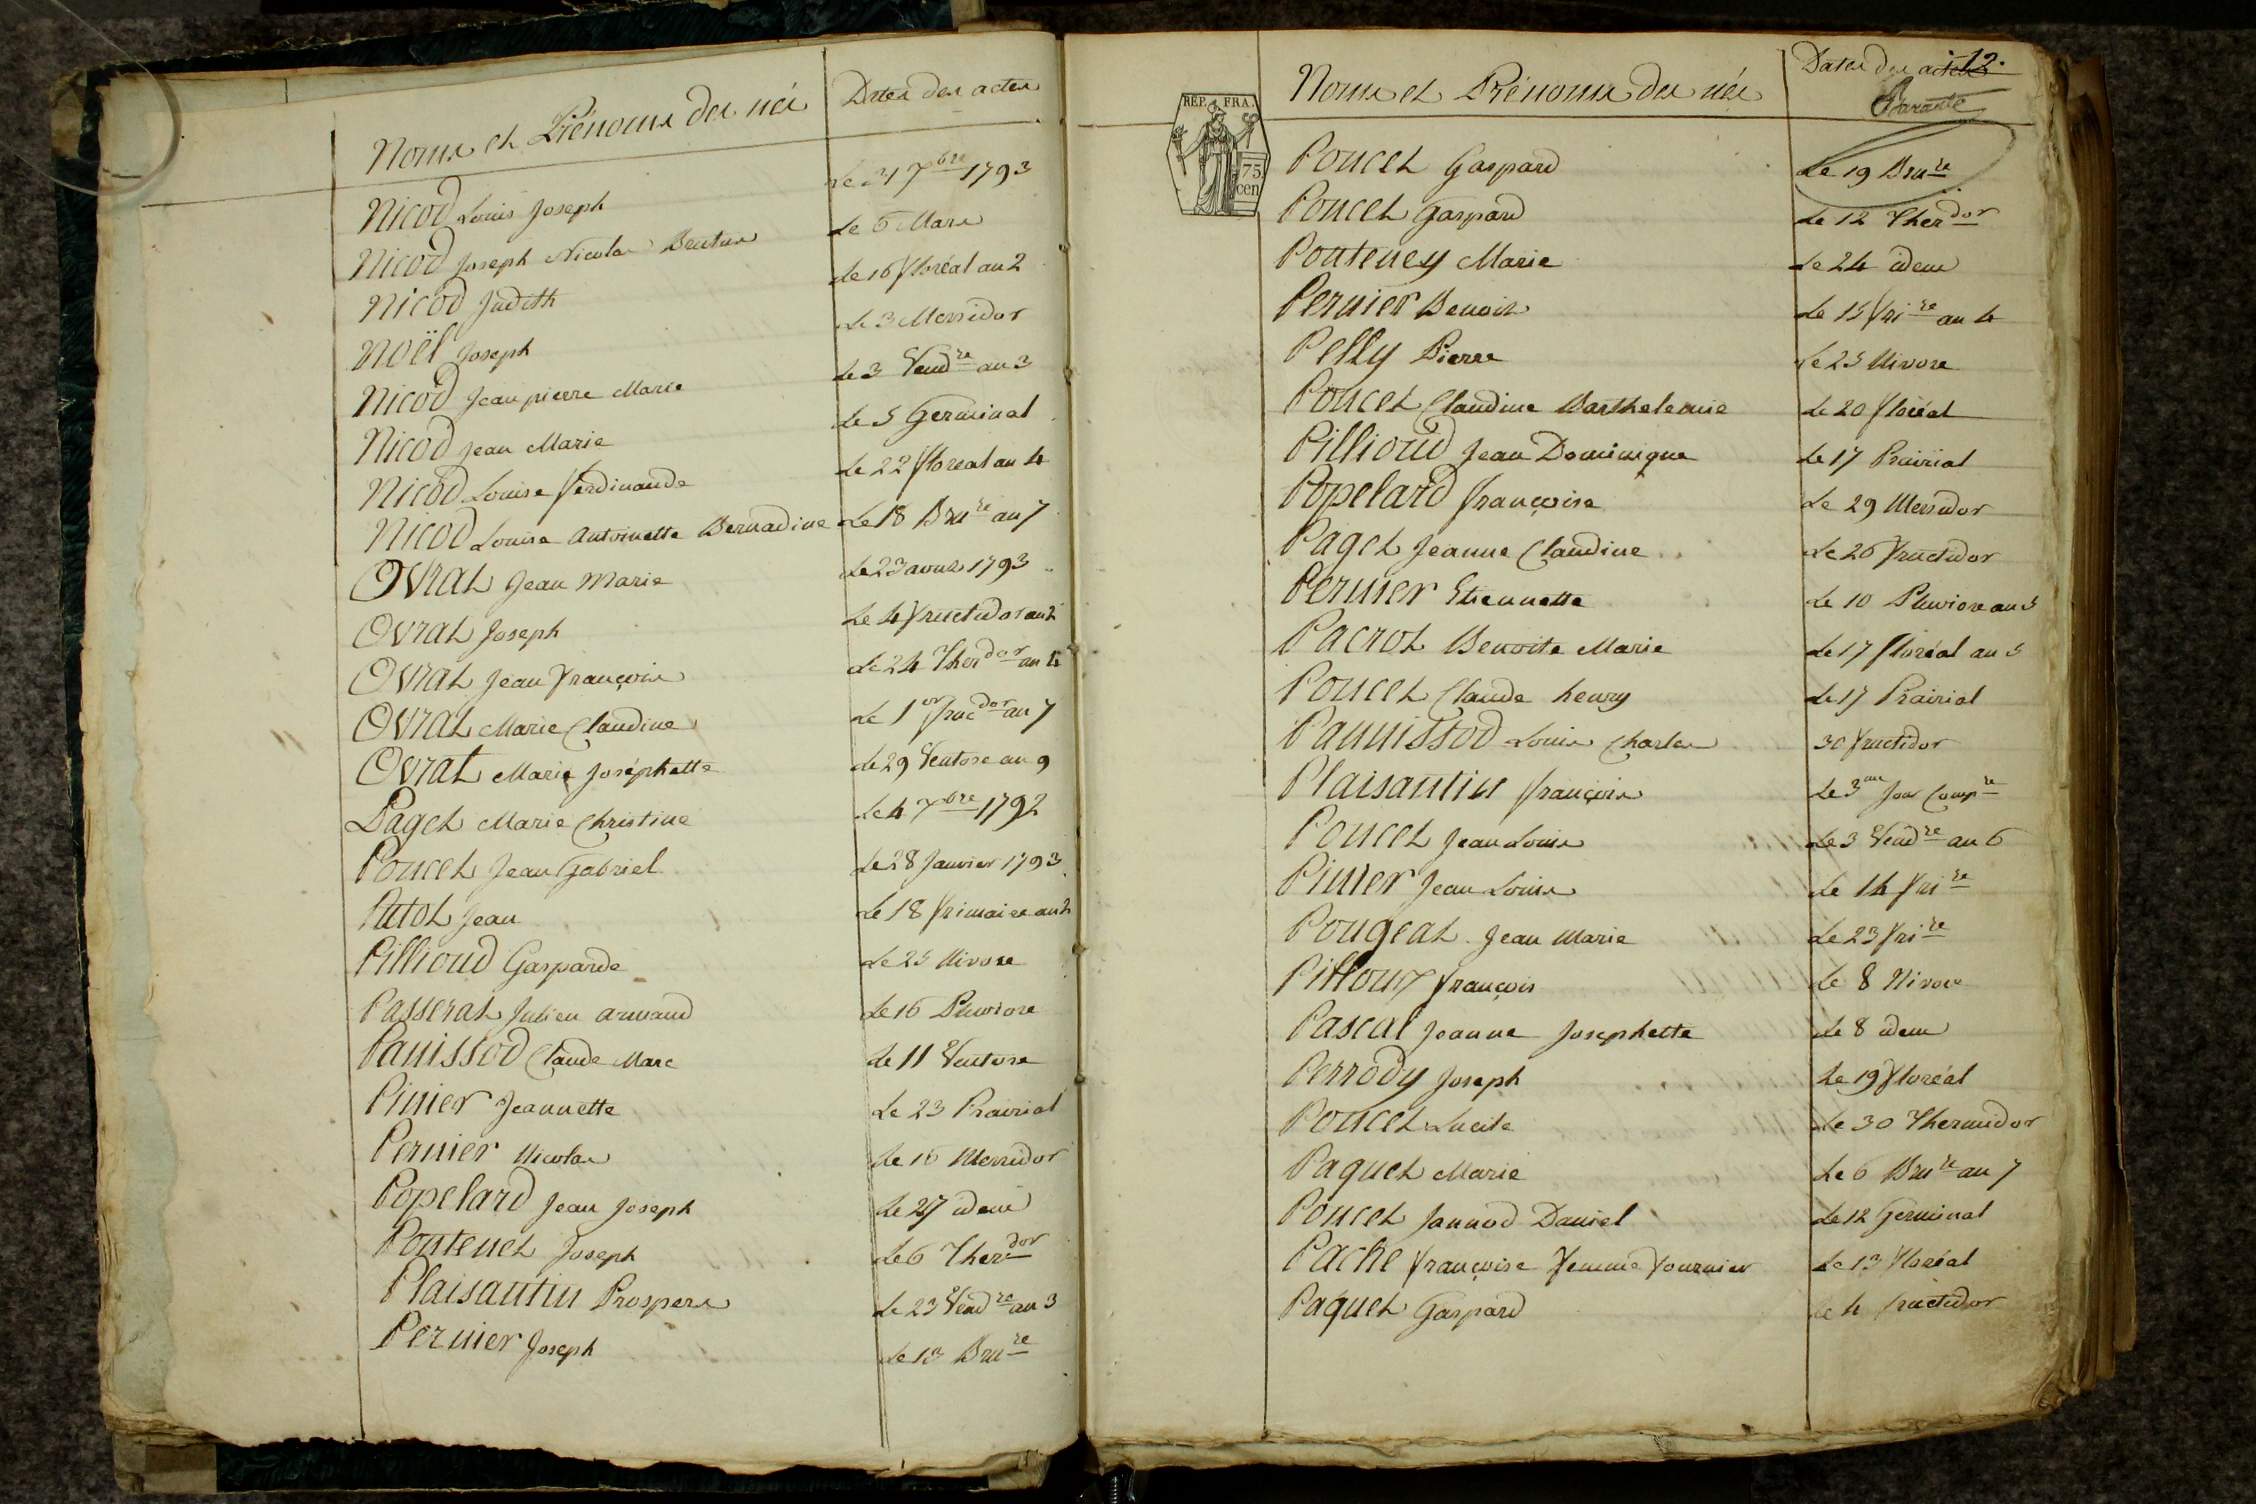 Noms et Prénoms des nés Dates des actes
Nicod Louis Joseph Le 21 7bre 1793
Nicod Joseph Nicolas Brutus Le 6 Mars
Nicod Judith Le 16 floréal an 2
Noël Joseph Le 3 Messidor
Nicod Jean pierre Marie Le 3 Vendre an 3
Nicod Jean Marie Le 5 Germinal
Nicod Louise ferdinande Le 22 floreal an 4
Nicod Louise Antoinette Bernadine Le 18 Brure an 7
Ovrat Jean Marie Le 23 aout 1793
Ovrat Joseph Le 4 fructidor an 2
Ovrat Jean François Le 24 Therdor an 4
Ovrat Marie Claudine Le 1er frucdor an 7
Ovrat Marie Joséphette Le 29 Ventose an 9
Paget Marie Christine Le 4 7bre 1792
Poncet Jean Gabriel Le 28 Janvier 1793
Putot Jean Le 18 frimaire an 2
Pillioud Gasparde Le 25 Nivose
Passerat Julien armand Le 16 Pluviose
Panissod Claude Marc Le 11 Ventose
Pinier Jeannette Le 23 Prairial
Pernier Nicolas Le 16 Messidor
Popelard Jean Joseph Le 27 idem
Pontenet Joseph Le 6 Therdor
Plaisantin Prospere Le 23 Vendre an 3
Pernier Joseph Le 13 Brure
12.
Noms et Prénoms des nés Dates des actes
REP. FRA.
75
cen
Poncet Gaspard Le 19 Brure
Poncet Gaspard Le 12 Therdor
Ponteney Marie Le 24 idem
Pernier Benoit Le 15 frire an 4
Pelly Pierre Le 25 Nivose
Poncet Claudine Barthelemie Le 20 floréal
Pillioud Jean Dominique Le 17 Prairial
Popelard françoise Le 29 Messidor
Paget Jeanne Claudine Le 26 fructidor
Pernier Etiennette Le 10 Pluviose an 5
Pacrot Benoite Marie Le 17 floréal an 5
Poncet Claude henry Le 17 Prairial
Pannissod Louis Charles 30 fructidor
Plaisantin françois Le 3me Jour Compre
Poncet Jean Louis Le 3 Vendre an 6
Pinier Jean Louis Le 14 frire
Pougeat Jean Marie Le 23 frire
françois Le 8 Nivose
Pascal Jeanne Josephette Le 8 idem
Perrody Joseph Le 19 floréal
Poncet Lucile Le 30 Thermidor
Paquet Marie Le 6 Brure an 7
Poncet Jannod Daniel Le 12 Germinal
Pache françoise femme fournier Le 13 floréal
Paquet Gaspard Le 4 fructidor